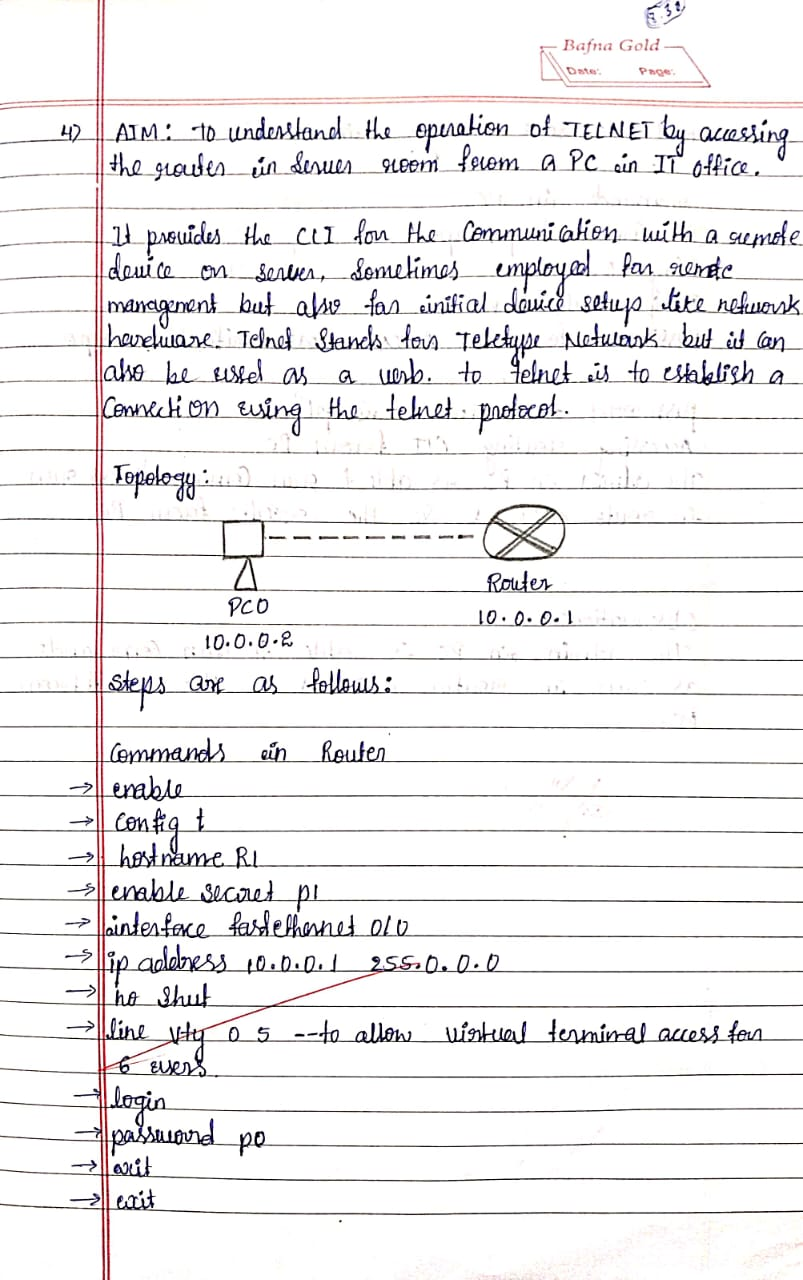 Bafna Gold
Date: Page:
4) AIM: To understand the operation of TELNET by accessing
the router in server room from a PC in IT office.
It provides the CLI for the communication with a remote
device or server, sometimes employed for remote
management but also for initial device setup like network
hardware. Telnet Stands for Teletype Network but it can
also be used as a verb. to telnet is to establish a
Connection using the telnet protocol.
Topology:
Router
PC0
10.0.0.1
10.0.0.2
Steps are as follows:
Commands in Router
→ enable
→ config t
→ hostname R1
→ enable secret p1
→ interface fastethernet 0/0
→ ip address 10.0.0.1 255.0.0.0
→ no shut
→ line vty 0 5 --to allow virtual terminal access for
6 users.
→ login
→ password p0
→ exit
→ exit